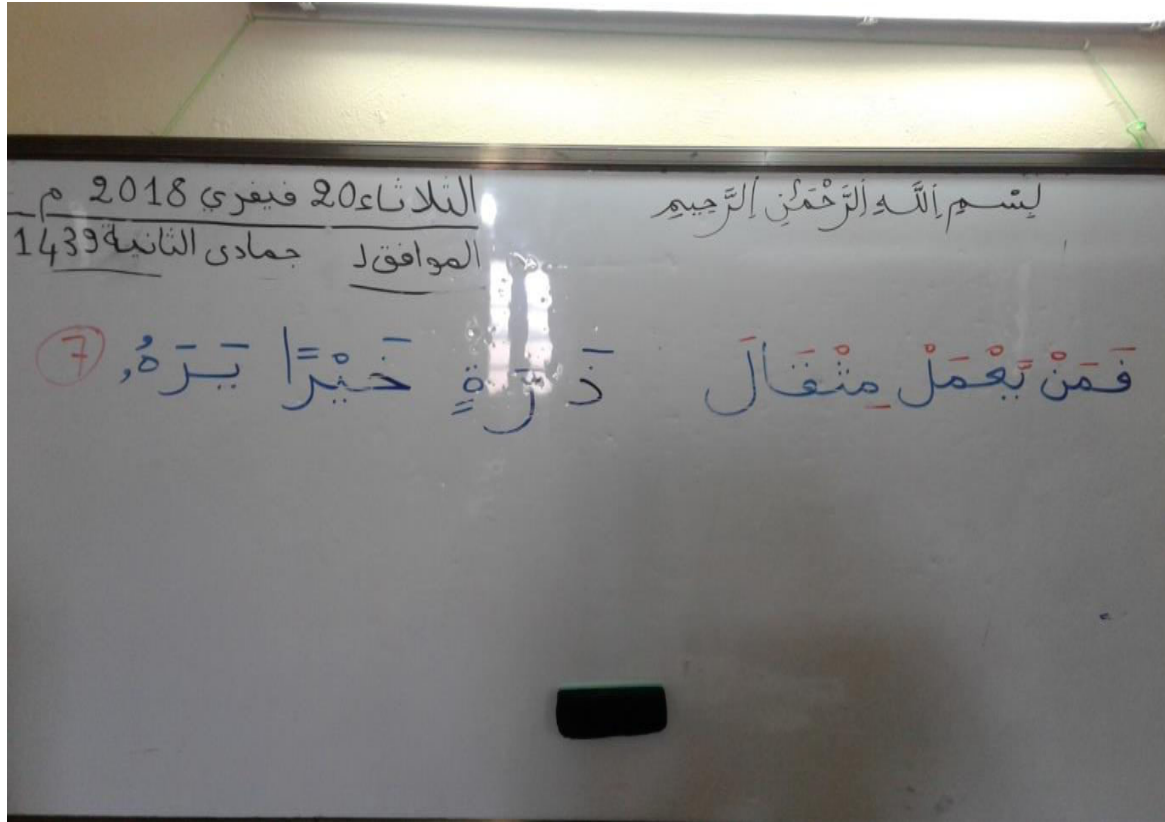 بِسْمِ اِللَّهِ اِلرَّحْمَٰنِ اِلرَّحِيمِ
الثلاثاء 20 فيفري 2018 م
الموافق لـ جمادى الثانية 1439
فَمَنْ يَّعْمَلْ مِثْقَالَ ذَرَّةٍ خَيْرًا يَرَهُۥ 7